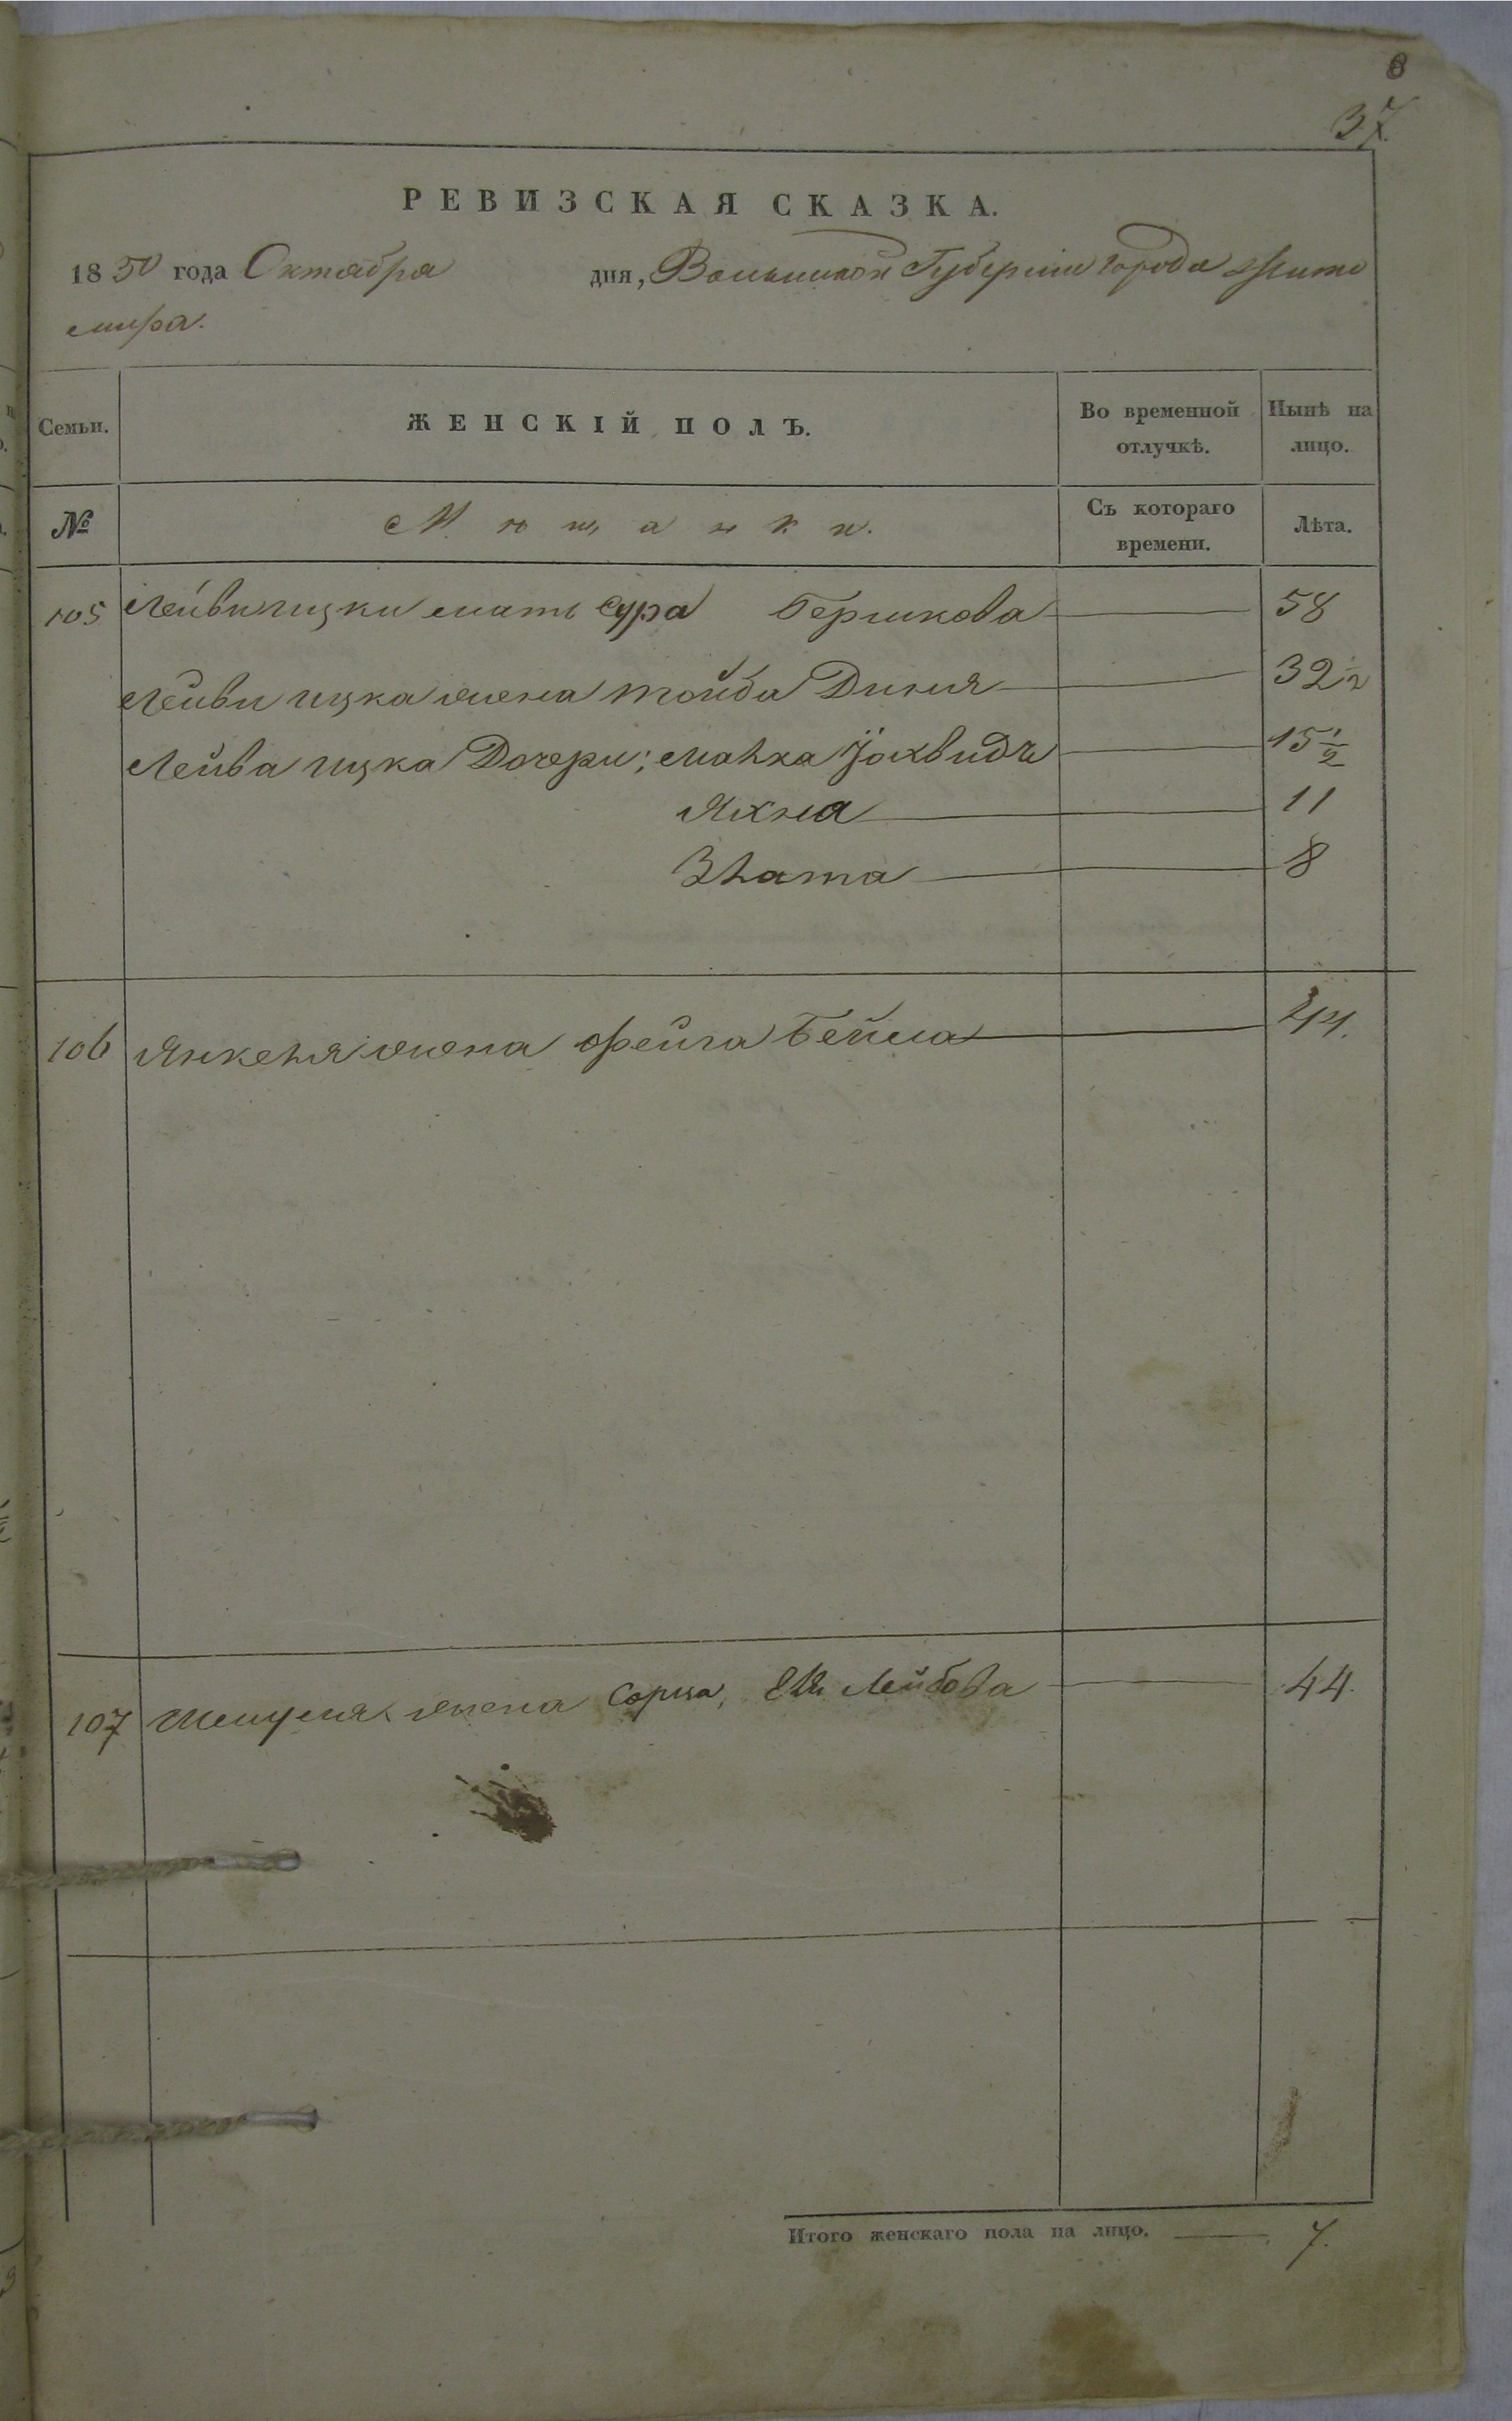 8
37.
РЕВИЗСКАЯ СКАЗКА.
1850 года Октября дня, Волынской Губернии города Жито
мира.
Семьи. ЖЕНСКІЙ ПОЛЪ. Во временной отлучкѣ. Нынѣ на лицо.
№ Мѣщанки. Съ котораго времени. Лѣта.
105 Лейби ицки мать Сура Гершкова 58
Лейби ицка жена Тойба Диня 32 1/2
Лейба ицка Дочери; Малка Іохвидъ 15 1/2
Яхна 11
Злата 8
106 Янкеля жена Фейга Бейла
107 жена Лейбова 44.
Итого женскаго пола на лицо. 7.